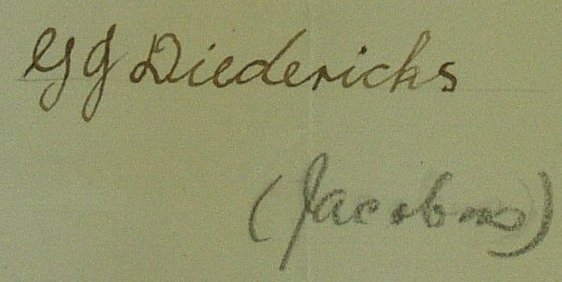 G J Diedericks
(Jacobus)